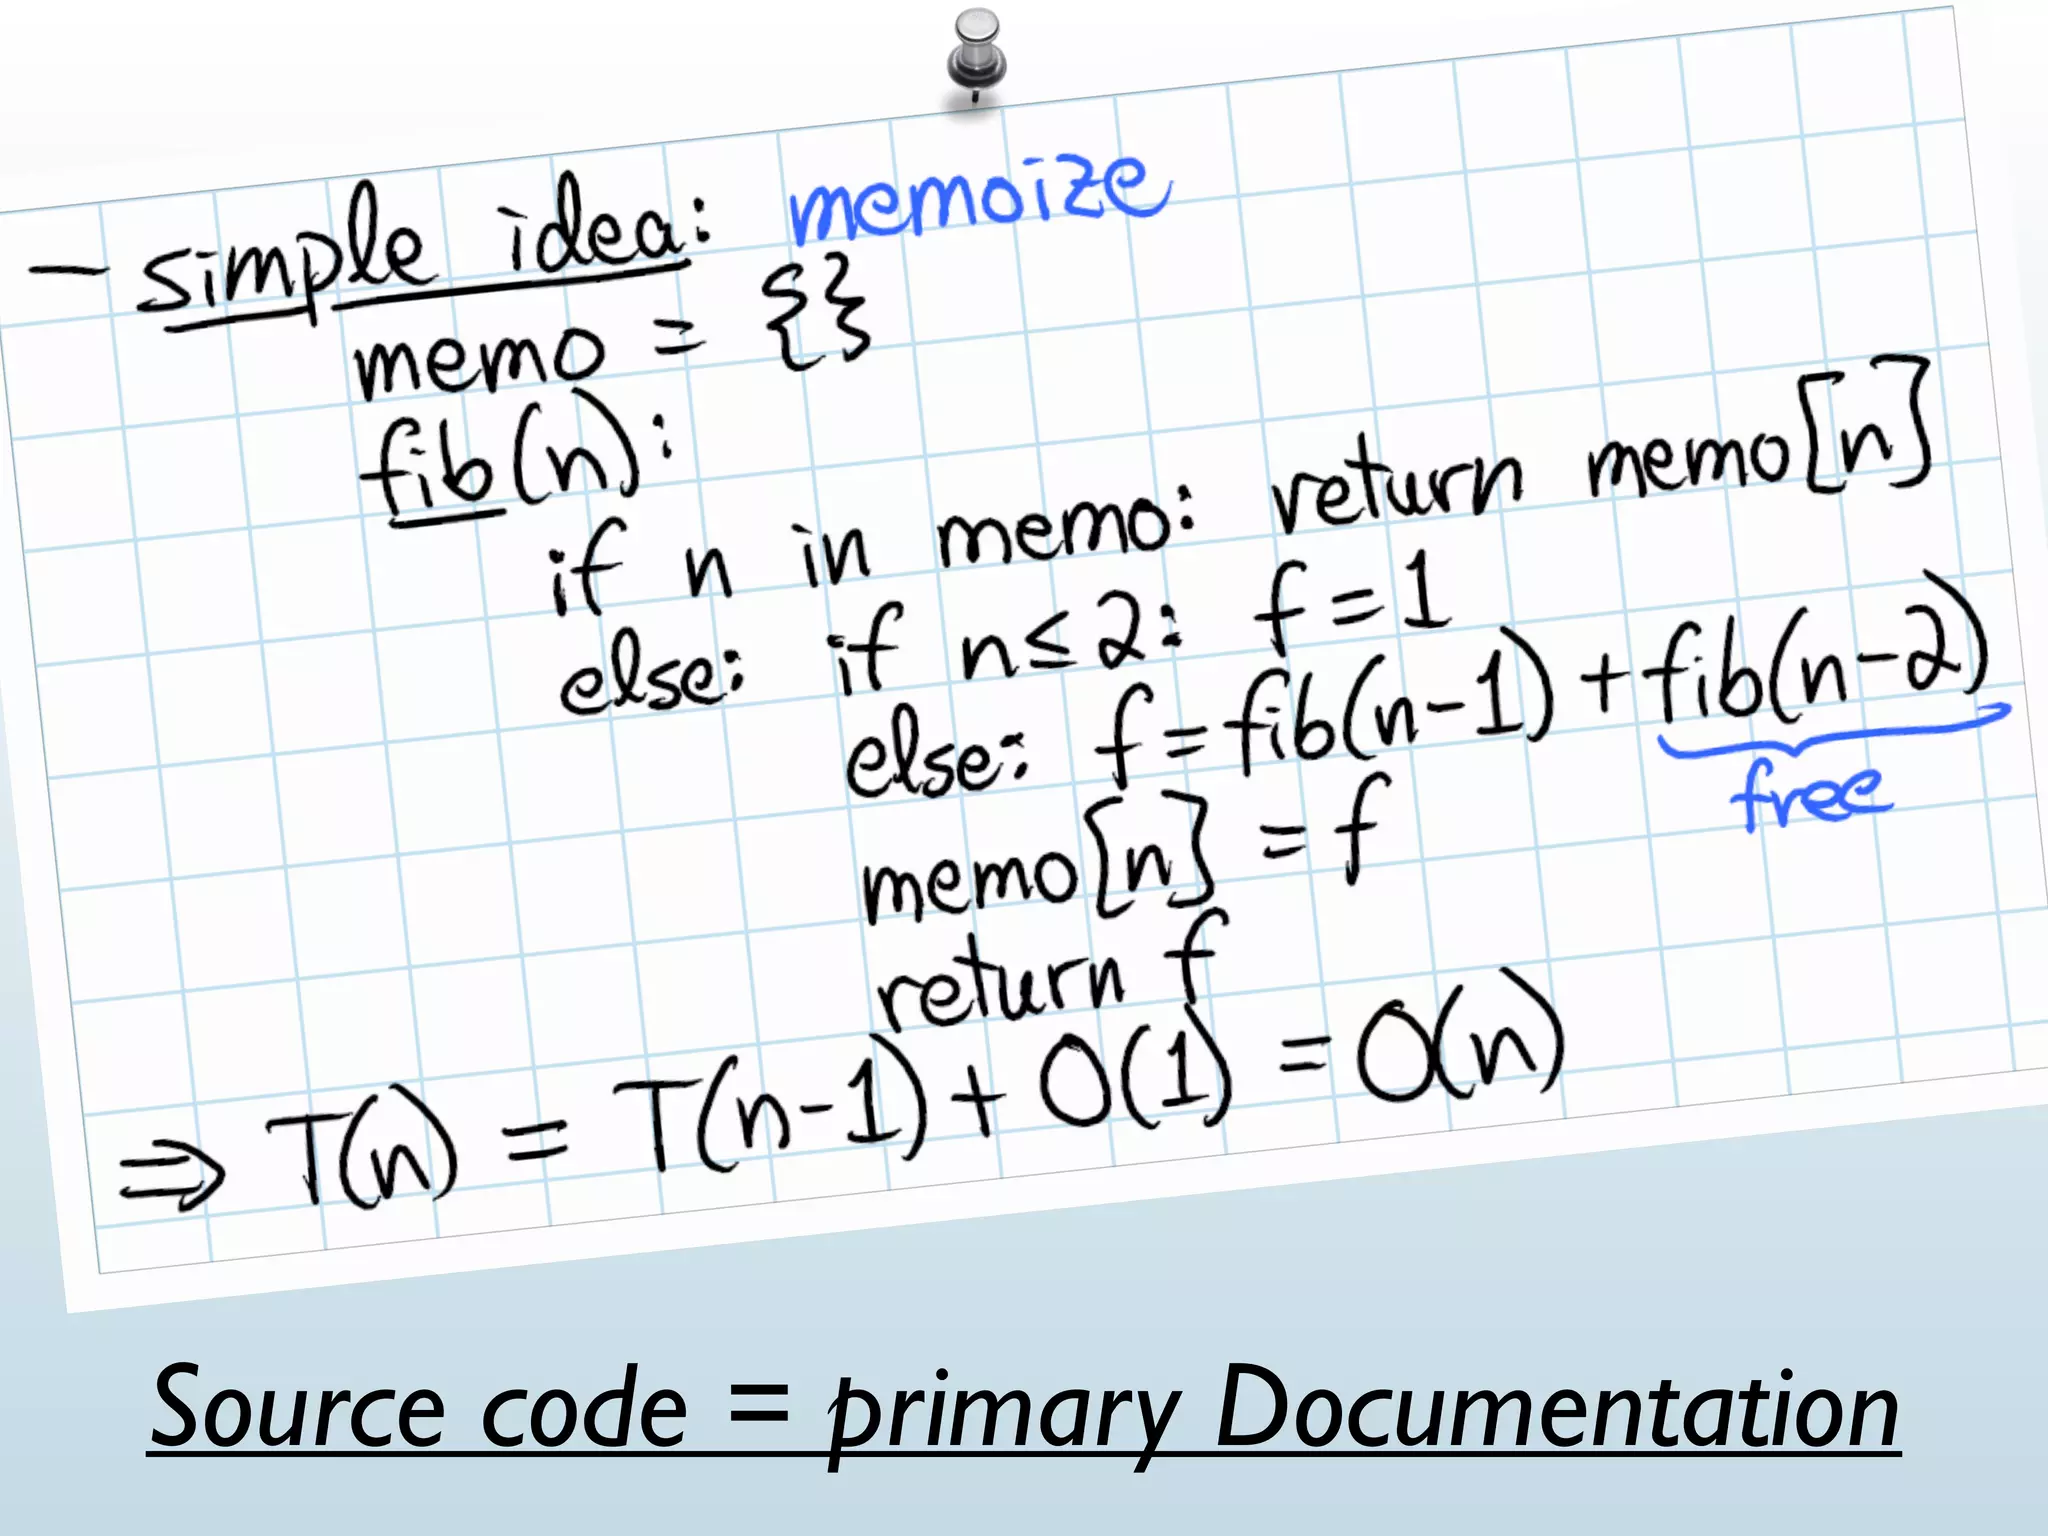 - simple idea: memoize
memo = {}
fib(n):
if n in memo: return memo[n]
else: if n≤2: f=1
else: f=fib(n-1)+fib(n-2)
free
memo[n] = f
return f
⇒ T(n) = T(n-1) + O(1) = O(n)
Source code = primary Documentation